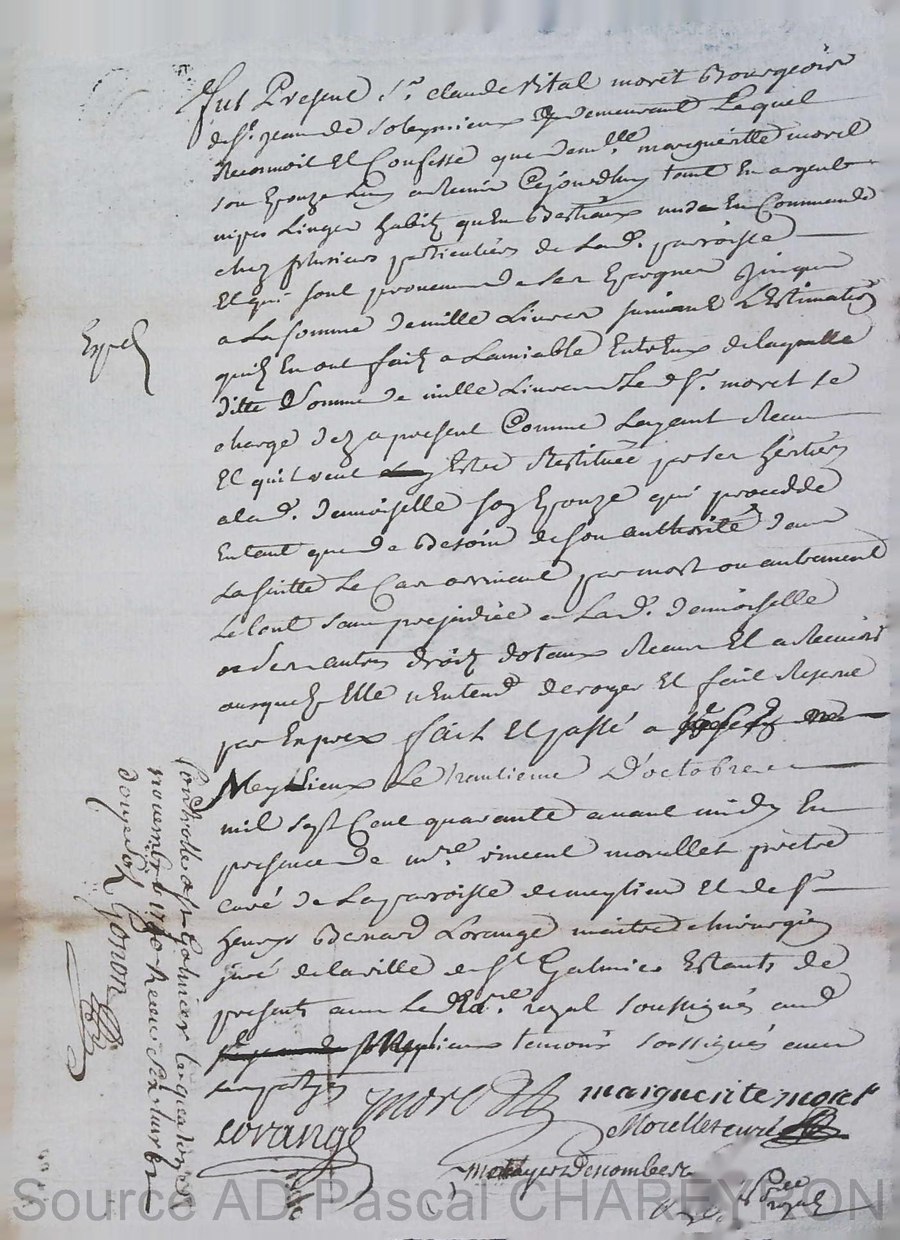 Fut Present Sr. claude vital moret Bourgeois
de St. jean de soleymieux y demeurant Lequel
Reconnoit Et Confesse que demlle. margueritte morel
son Epouze Luy a Remis Cejourdhuy tant En argent
nipes Linges habitz qu'En Bestiaux mis En Commande
chez plusieurs particuliers de Lad. parroisse
Et qui sont provenus de ses Epargnes jusques
a La somme de mille Livres suivant L'estimation
quilz En ont faitz a Lamiable Entr'Eux de laquelle
ditte Somme de mille Livres Le d. Sr. moret se
charge dez a present Comme Layant Receu
Et quil veut Estre Restituée par ses heritiers
a lad. demoiselle son Epouze qui procedde
Entant que de Besoin de son authorité dans
La suitte Le Cas arrivant par mort ou autrement
Le tout sans prejudice a Lad. demoiselle
a ses autres droitz dotaux Receus Et a Recevoir
ausquelz Elle n'Entend deroger Et fait Reserve
par Exprex fait Et passé a
Meylieux Le trantieme D'octobre
mil sept Cent quarante avant midy En
presence de mre. vincent morellet prêtre
curé de La parroisse de meylieu Et de Sr.
henry Benard Lorange maitre chirurgien
juré de la ville de St Galmier Estants de
presents aud. Lieu Et Nre. royal soussignés aud
Meylieux temoins soussignés avec
les partyes
moret marguerite moret
Lorange Morellet curé
Dscombes
royal
Exped
Controllé a St Galmier le quatorze
novembre 1740 Receu six livres
douze s Gonon
Source AD Pascal CHAREYRON